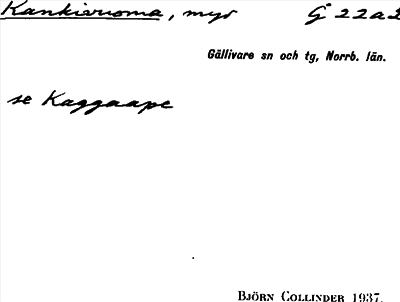 Kankivuoma, myr G 22a2
Gällivare sn och tg, Norrb. län.
se Kaggaape
BJÖRN COLLINDER 1937.